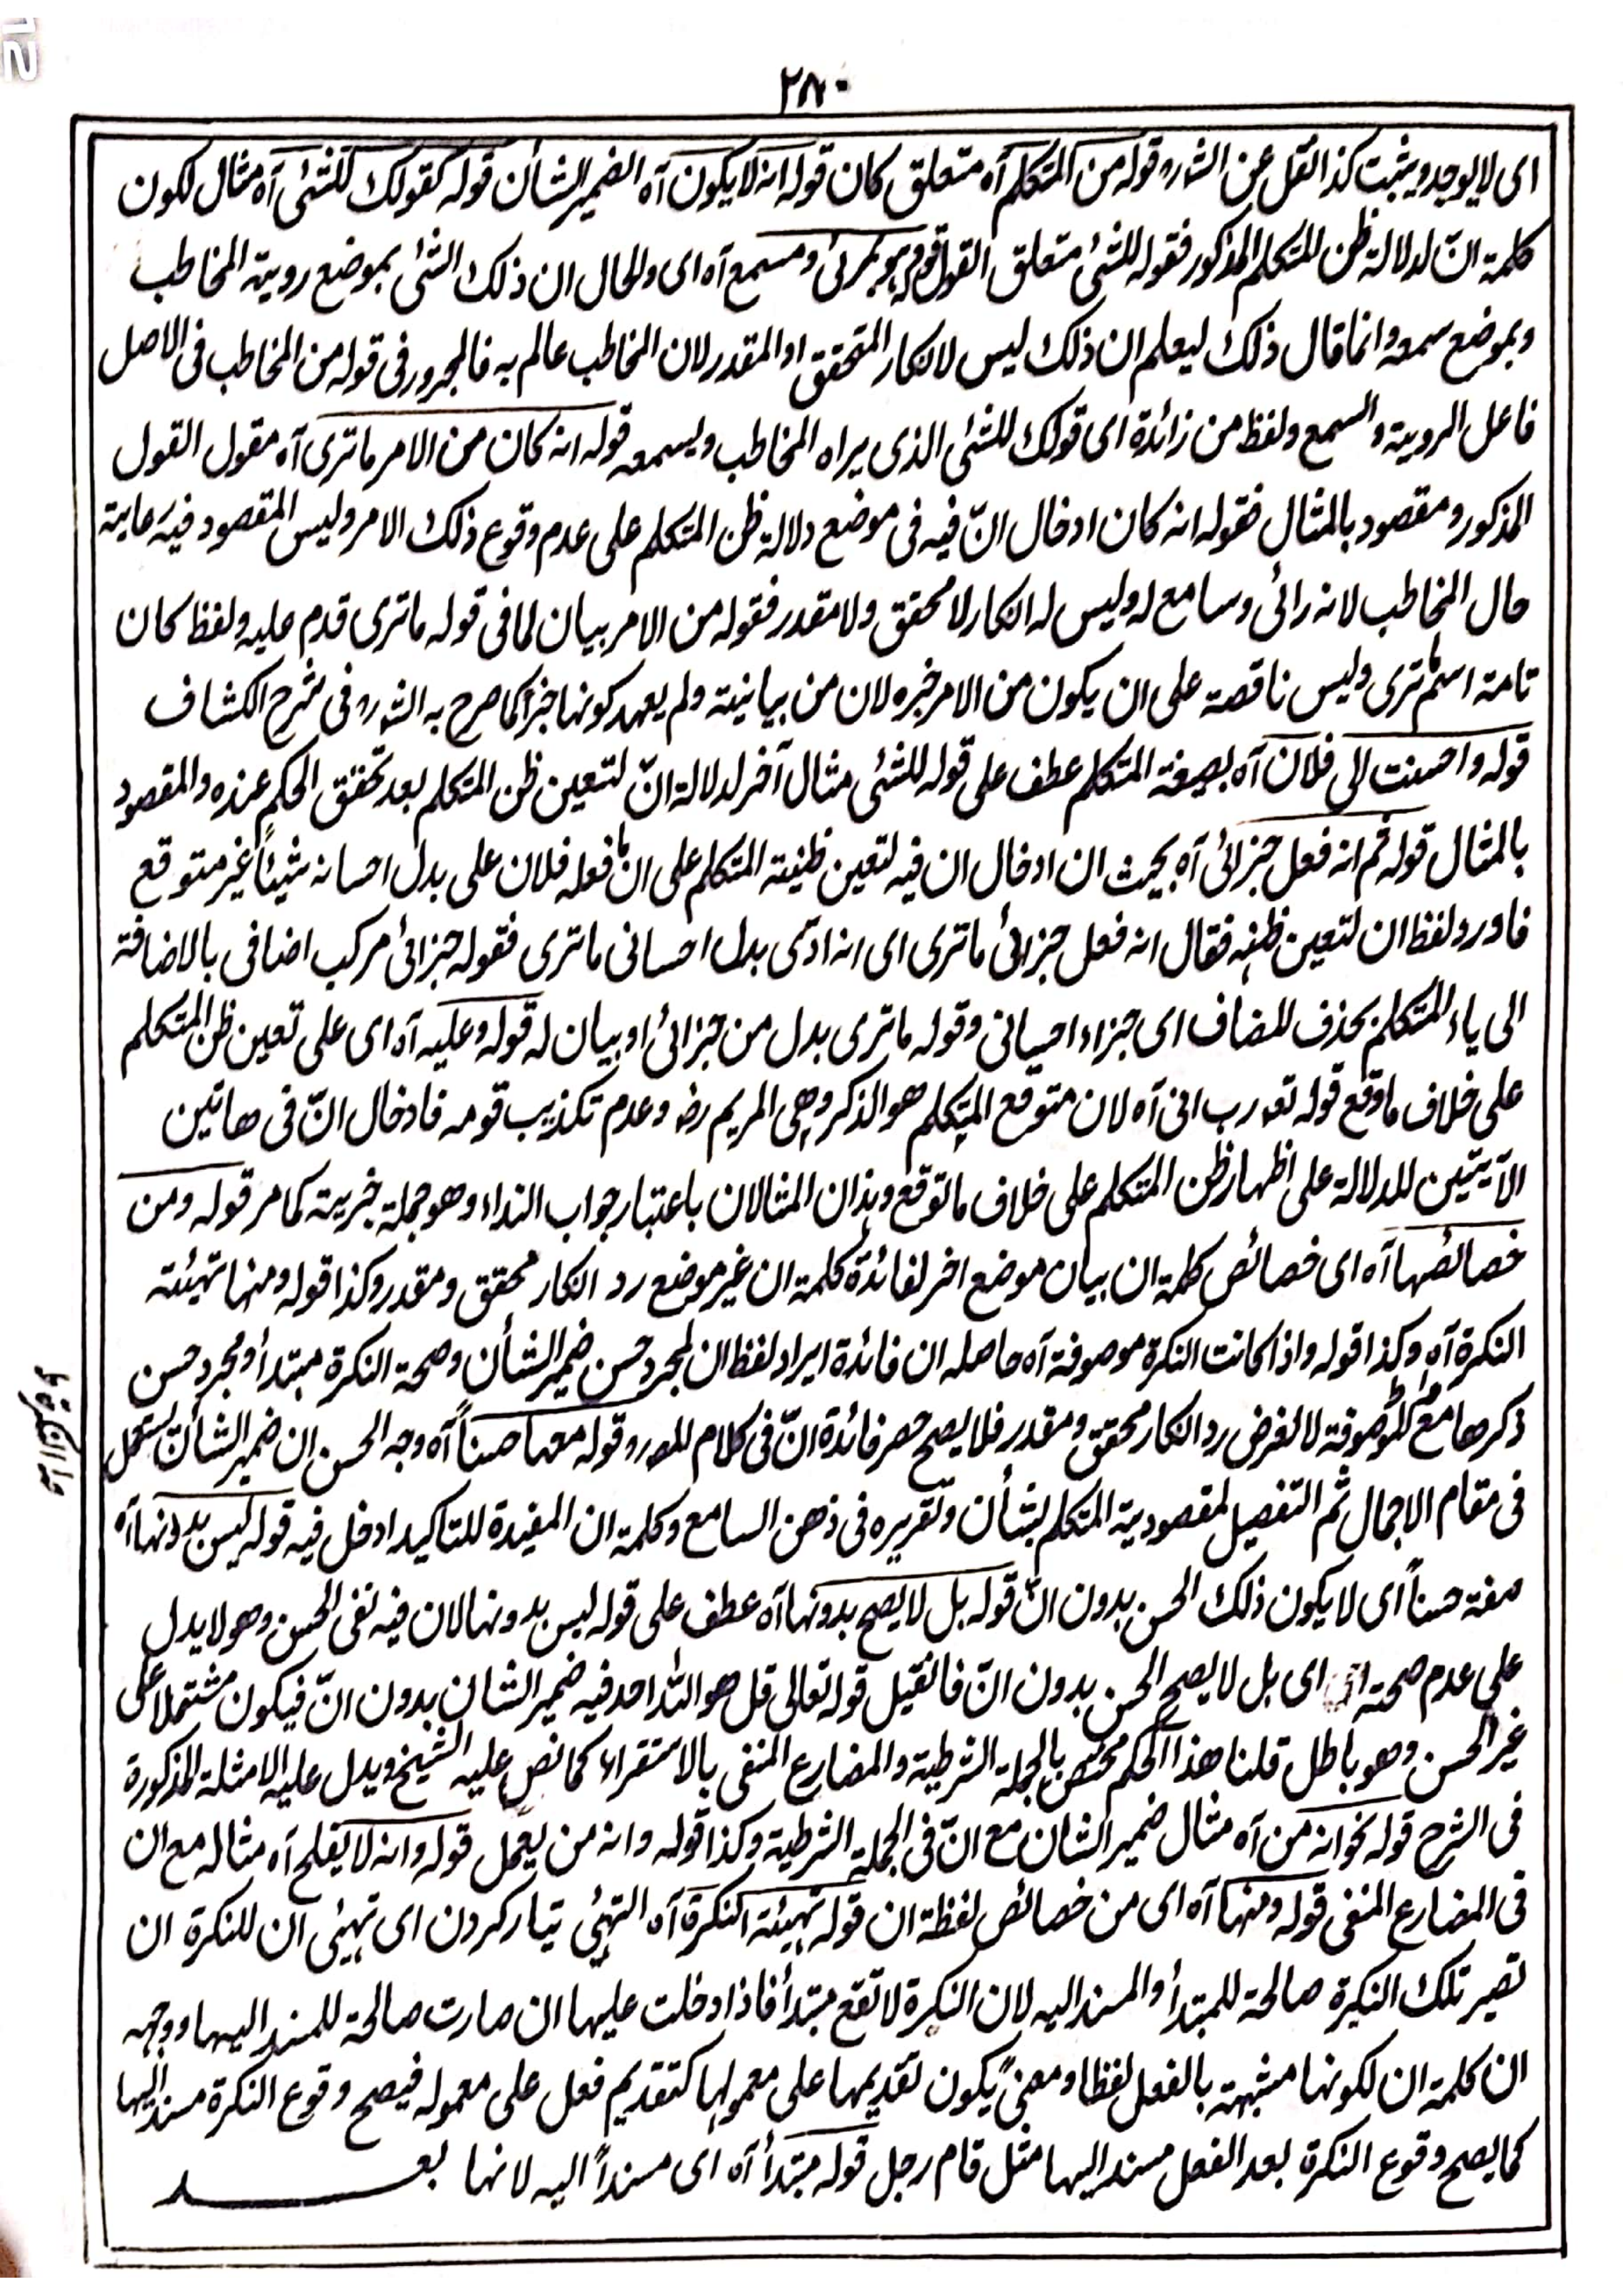 ٢٨٠
اى لا يوجد ويثبت كذا نقل عن الش ره قوله من المتكلم آه متعلق كان قوله انه لا يكون آه الضمير الشأن قوله كقولك للشئى آه مثال لكون
كلمة انّ لدلالة ظن للمتكلم المذكور فقوله للشئى متعلق القول قوله هو بمرئى ومسمع آه اى والحال ان ذلك الشئ بموضع روية المخاطب
وبموضع سمعه وانما قال ذلك ليعلم ان ذلك ليس لانكار المتحقق او المقدر لان المخاطب عالم به فالمجرور فى قوله من المخاطب فى الاصل
فاعل الروية والسمع ولفظ من زائدة اى قولك للشئى الذى يراه المخاطب ويسمعه قوله انه كان من الامر ما ترى آه مقول القول
المذكور ومقصود بالمثال فقوله انه كان ادخال انّ فيه فى موضع دلالة ظن المتكلم على عدم وقوع ذلك الامر وليس المقصود فيه رعاية
حال المخاطب لانه رائى وسامع له وليس له انكار لا محقق ولا مقدر فقوله من الامر بيان لما فى قوله ما ترى قدم عليه ولفظ كان
تامة اسم ما ترى وليس ناقصة على ان يكون من الامر خبره لان من بيانية ولم يعهد كونها خبراً كما صرح به الش ره فى شرح الكشاف
قوله واحسنت الى فلان آه بصيغة المتكلم عطف على قوله للشئى مثال آخر لدلالة انّ لتعين ظن المتكلم بعد تحقق الحكم عنده والمقصود
بالمثال قوله ثم انه فعل جزائى آه بحيث ان ادخال ان فيه لتعين ظنية المتكلم على ان ما فعله فلان على بدل احسانه شيئاً غير متوقع
فاورد لفظ ان لتعين ظنه فقال انه فعل جزائى ما ترى اى انه ادّى بدل احسانى ما ترى فقوله جزائى مركب اضافى بالاضافة
الى ياء المتكلم بحذف للمضاف اى جزاء احسانى وقوله ما ترى بدل من جزائى او بيان له قوله وعليه آه اى على تعين ظن المتكلم
على خلاف ما وقع قوله تعه رب انى آه لان متوقع المتكلم هو الذكر وهى المريم رض وعدم تكذيب قومه فادخال انّ فى هاتين
الآيتين للدلالة على اظهار ظن المتكلم على خلاف ما توقع وهذان المثالان باعتبار جواب النداء وهو جملة خبرية كما مر قوله ومن
خصائصها آه اى خصائص كلمة ان بيان موضع اخر لفائدة كلمة ان غير موضع رد انكار محقق ومقدر وكذا قوله ومنها تهيئة
النكرة آه وكذا قوله واذا كانت النكرة موصوفة آه حاصله ان فائدة ايراد لفظ ان لمجرد حسن ضمير الشأن وصحة النكرة مبتدأ ومجرد حسن
ذكرها مع الموصوفة لا لغرض رد انكار محقق ومقدر فلا يصح حصر فائدة انّ فى كلام المص ره وقوله معها حسناً آه وجه الحسن ان ضمير الشأن يستعمل
فى مقام الاجمال ثم التفصيل لمقصودية المتكلم بشأن وتقريره فى ذهن السامع وكلمة ان المفيدة للتاكيد ادخل فيه قوله ليس بدونها آه
صفة حسناً اى لا يكون ذلك الحسن بدون انّ قوله بل لا يصح بدونها آه عطف على قوله ليس بدونها لان فيه نفى الحسن وهو لا يدل
على عدم صحته اى بل لا يصح الحسن بدون انّ فان قيل قوله تعالى قل هو الله احد فيه ضمير الشان بدون انّ فيكون مشتملا على
غير الحسن وهو باطل قلنا هذا الحكم مختص بالجملة الشرطية والمضارع المنفى بالاستقراء كما نص عليه الشيخ ويدل عليه الامثلة المذكورة
فى الشرح قوله نحو انه من آه مثال ضمير الشان مع انّ فى الجملة الشرطية وكذا قوله وانه من يعمل قوله وانه لا يفلح آه مثاله مع ان
فى المضارع المنفى قوله ومنها آه اى من خصائص لفظة ان قوله تهيئة النكرة آه التهيئ تيار كردن اى تهيئى ان للنكرة ان
تصير تلك النكرة صالحة للمبتدأ والمسند اليه لان النكرة لا تقع مبتدأ فاذا دخلت عليها ان صارت صالحة للمسند اليها ووجهه
ان كلمة ان لكونها مشبهة بالفعل لفظا ومعنىً يكون تقديمها على معمولها كتقديم فعل على معموله فيصح وقوع النكرة مسند اليها
كما يصح وقوع النكرة بعد الفعل مسند اليها مثل قام رجل قوله مبتدأ آه اى مسنداً اليه لانها بعد